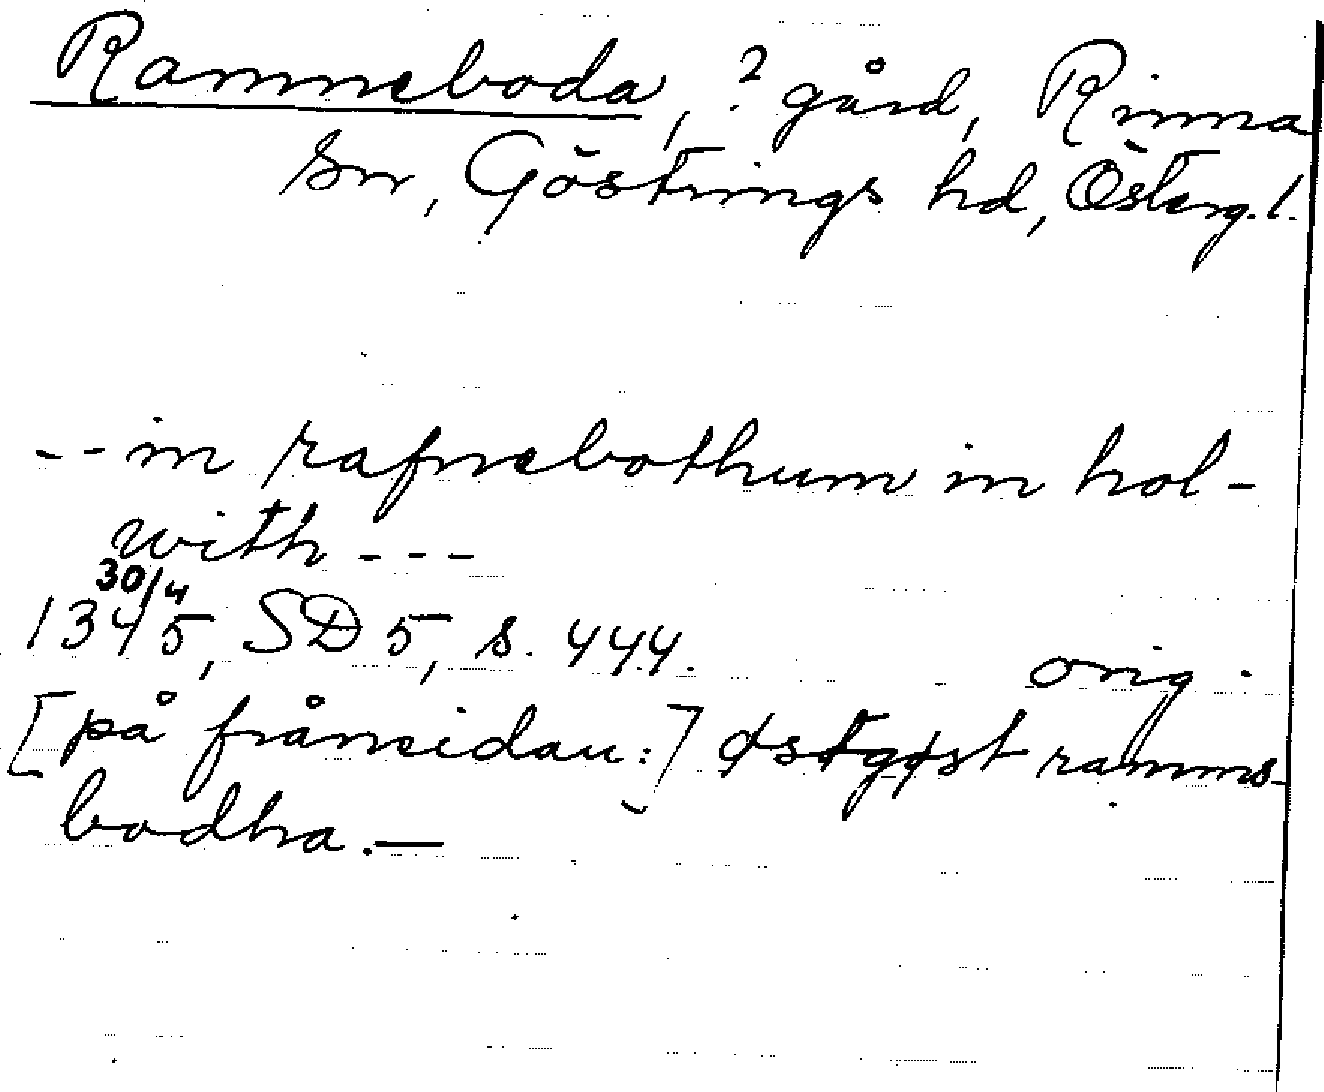 Ramneboda, ? gård, Rinna
sn, Göstrings hd, Österg.l.
-- in rafnebothum in hol-
with ---
1345 30/4, SD 5, s. 444. orig.
[på frånsidan:] østgøst ramms-
bodha. —